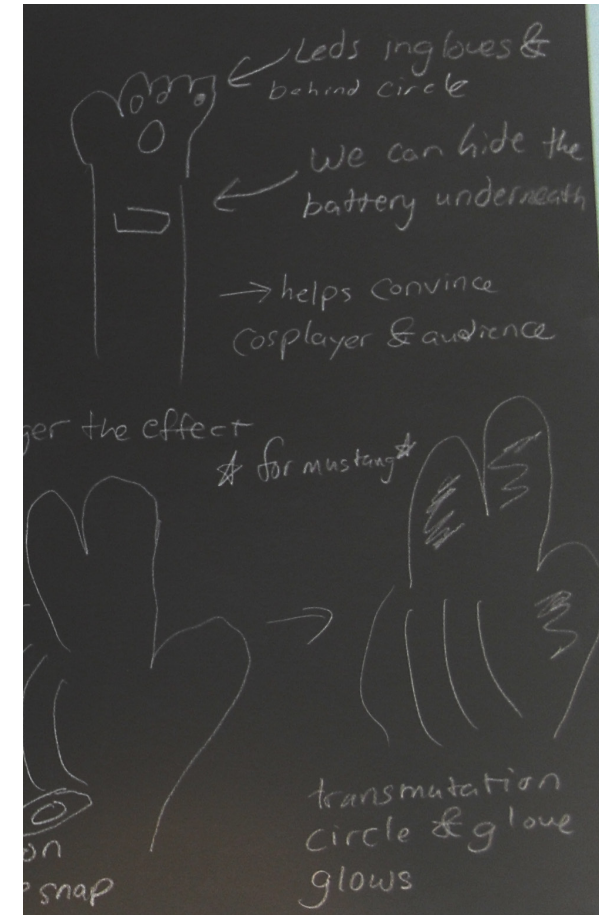 Leds in gloves &
behind circle
We can hide the
battery underneath
→ helps convince
cosplayer & audience
the effect
☆ for mustang ☆
transmutation
circle & glove
glows
on
snap